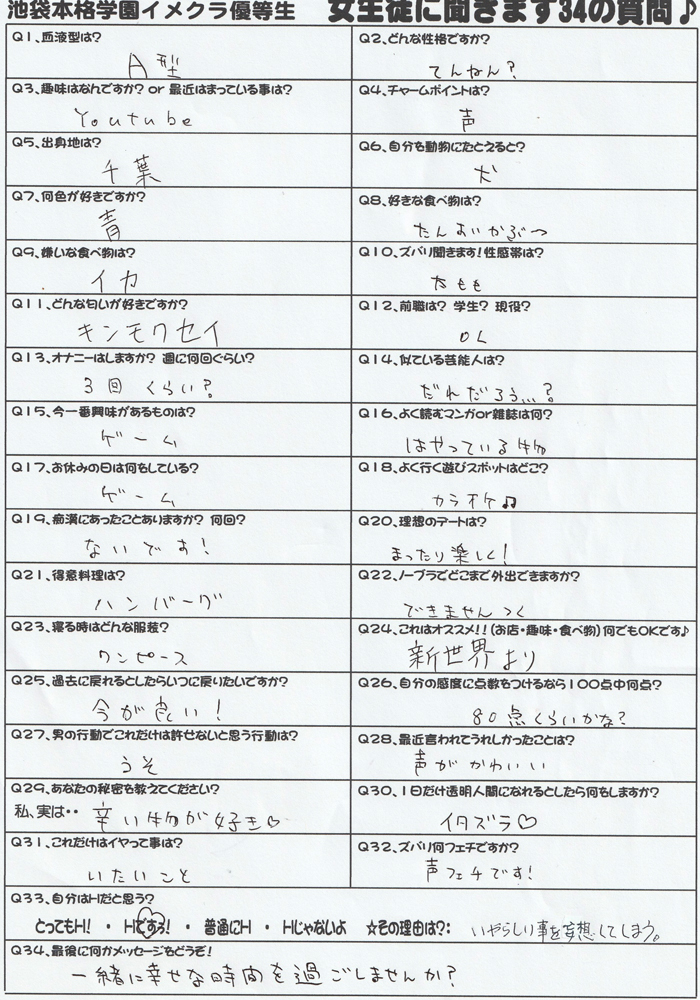 池袋本格学園イメクラ優等生　女生徒に聞きます34の質問♪
Q1、血液型は?
A型
Q2、どんな性格ですか?
てんねん?
Q3、趣味はなんですか? or 最近はまっている事は?
Youtube
Q4、チャームポイントは?
声
Q5、出身地は?
千葉
Q6、自分を動物にたとえると?
犬
Q7、何色が好きですか?
青
Q8、好きな食べ物は?
たんたいかぶつ
Q9、嫌いな食べ物は?
イカ
Q10、ズバリ聞きます!性感帯は?
太もも
Q11、どんな匂いが好きですか?
キンモクセイ
Q12、前職は? 学生? 現役?
OL
Q13、オナニーはしますか? 週に何回ぐらい?
3回くらい?
Q14、似ている芸能人は?
だれだろう...?
Q15、今一番興味があるものは?
ゲーム
Q16、よく読むマンガor雑誌は何?
はやっている物
Q17、お休みの日は何をしている?
ゲーム
Q18、よく行く遊びスポットはどこ?
カラオケ♫
Q19、痴漢にあったことありますか? 何回?
ないです!
Q20、理想のデートは?
まったり楽しく!
Q21、得意料理は?
ハンバーグ
Q22、ノーブラでどこまで外出できますか?
できません
Q23、寝る時はどんな服装?
ワンピース
Q24、これはオススメ!!(お店・趣味・食べ物)何でもOKです♪
新世界より
Q25、過去に戻れるとしたらいつに戻りたいですか?
今が良い!
Q26、自分の感度に点数をつけるなら100点中何点?
80点くらいかな?
Q27、男の行動でこれだけは許せないと思う行動は?
うそ
Q28、最近言われてうれしかったことは?
声がかわいい
Q29、あなたの秘密を教えてください?
私、実は・・辛い物が好き♡
Q30、1日だけ透明人間になれるとしたら何をしますか?
イタズラ♡
Q31、これだけはイヤって事は?
いたいこと
Q32、ズバリ何フェチですか?
声フェチです!
Q33、自分はHだと思う?
とってもH!　・　Hですぅ!　・　普通にH　・　Hじゃないよ　☆その理由は?:　いやらしい事を妄想してしまう。
Q34、最後に何かメッセージをどうぞ!
一緒に幸せな時間を過ごしませんか?